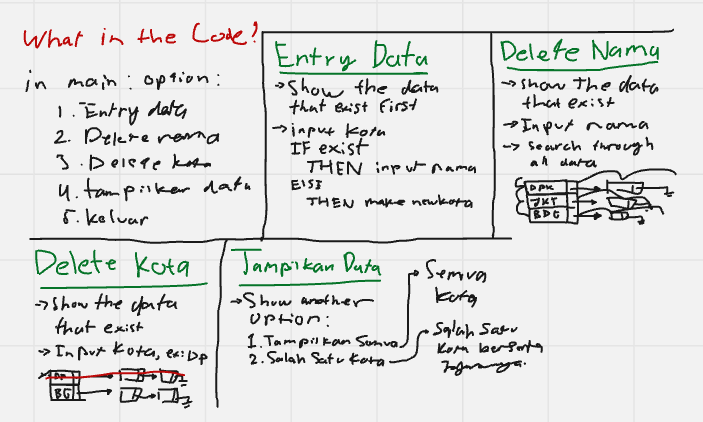 What in the Code?
in main: option:
1. Entry data
2. Delete nama
3. Delete kota
4. tampilkan data
5. keluar
Entry Data
→ Show the data
that exist First
→ input kota
IF exist
THEN input nama
ElSE
THEN make newkota
Delete Nama
→ show The data
that exist
→ Input nama
→ search through
all data
DPK
JKT
BDG
Delete Kota
→ Show the data
that exist
→ Input Kota, ex: Dp
DP
BG
Tampilkan Data
→ Show another
option:
1. Tampilkan Semua
2. Salah Satu Kota
→ Semua
Kota
→ Salah Satu
Kota beserta